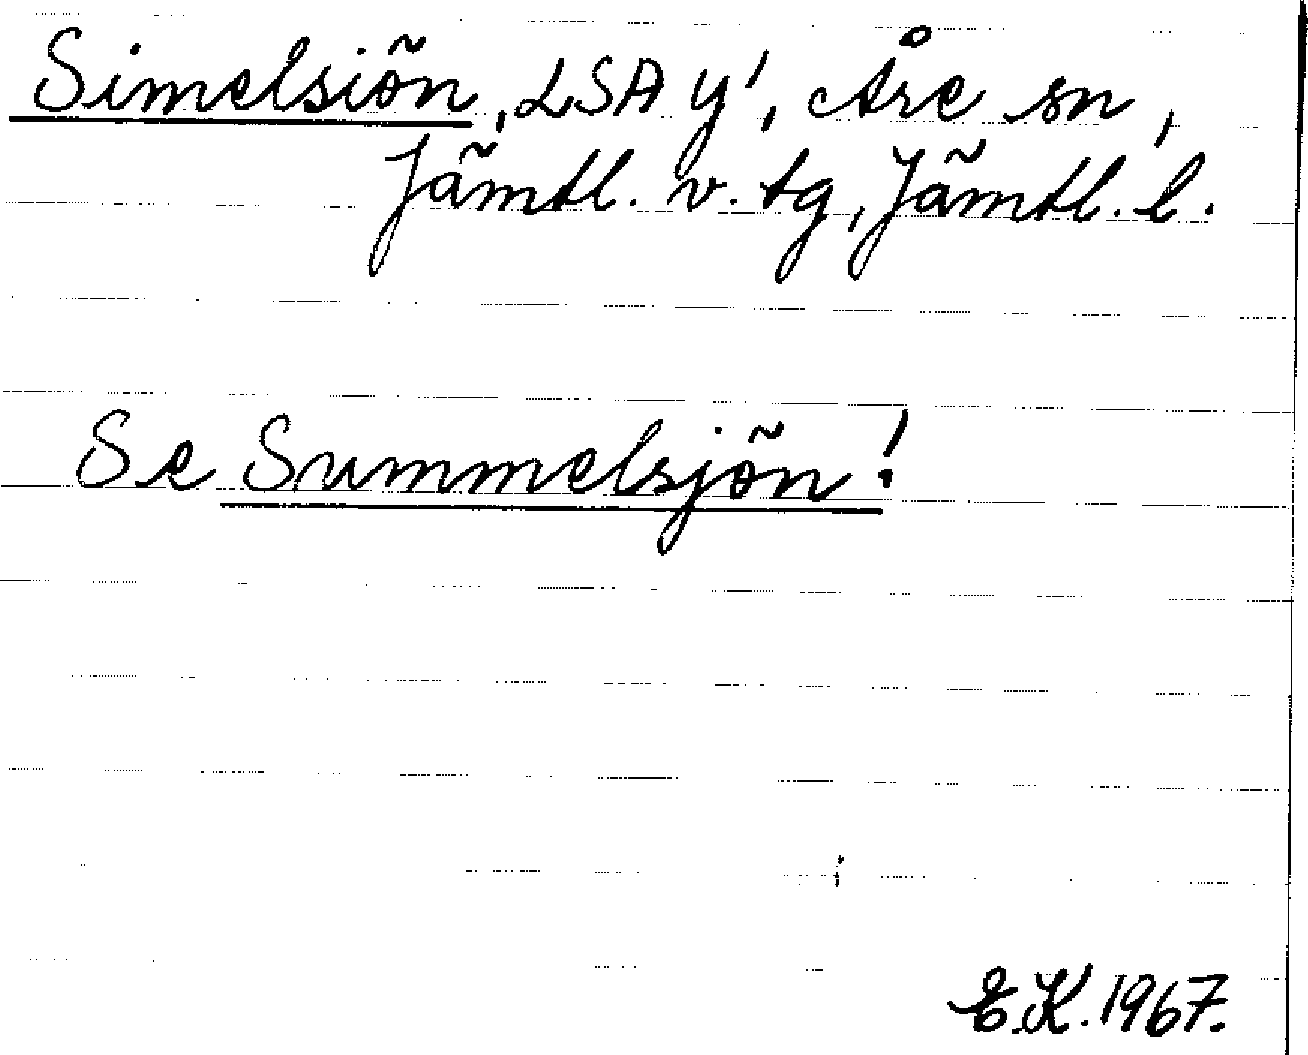 Simelsiön, LSA y', Åre sn,
Jämtl. v. tg, Jämtl. l.
Se Summelsjön!
E.K. 1967.